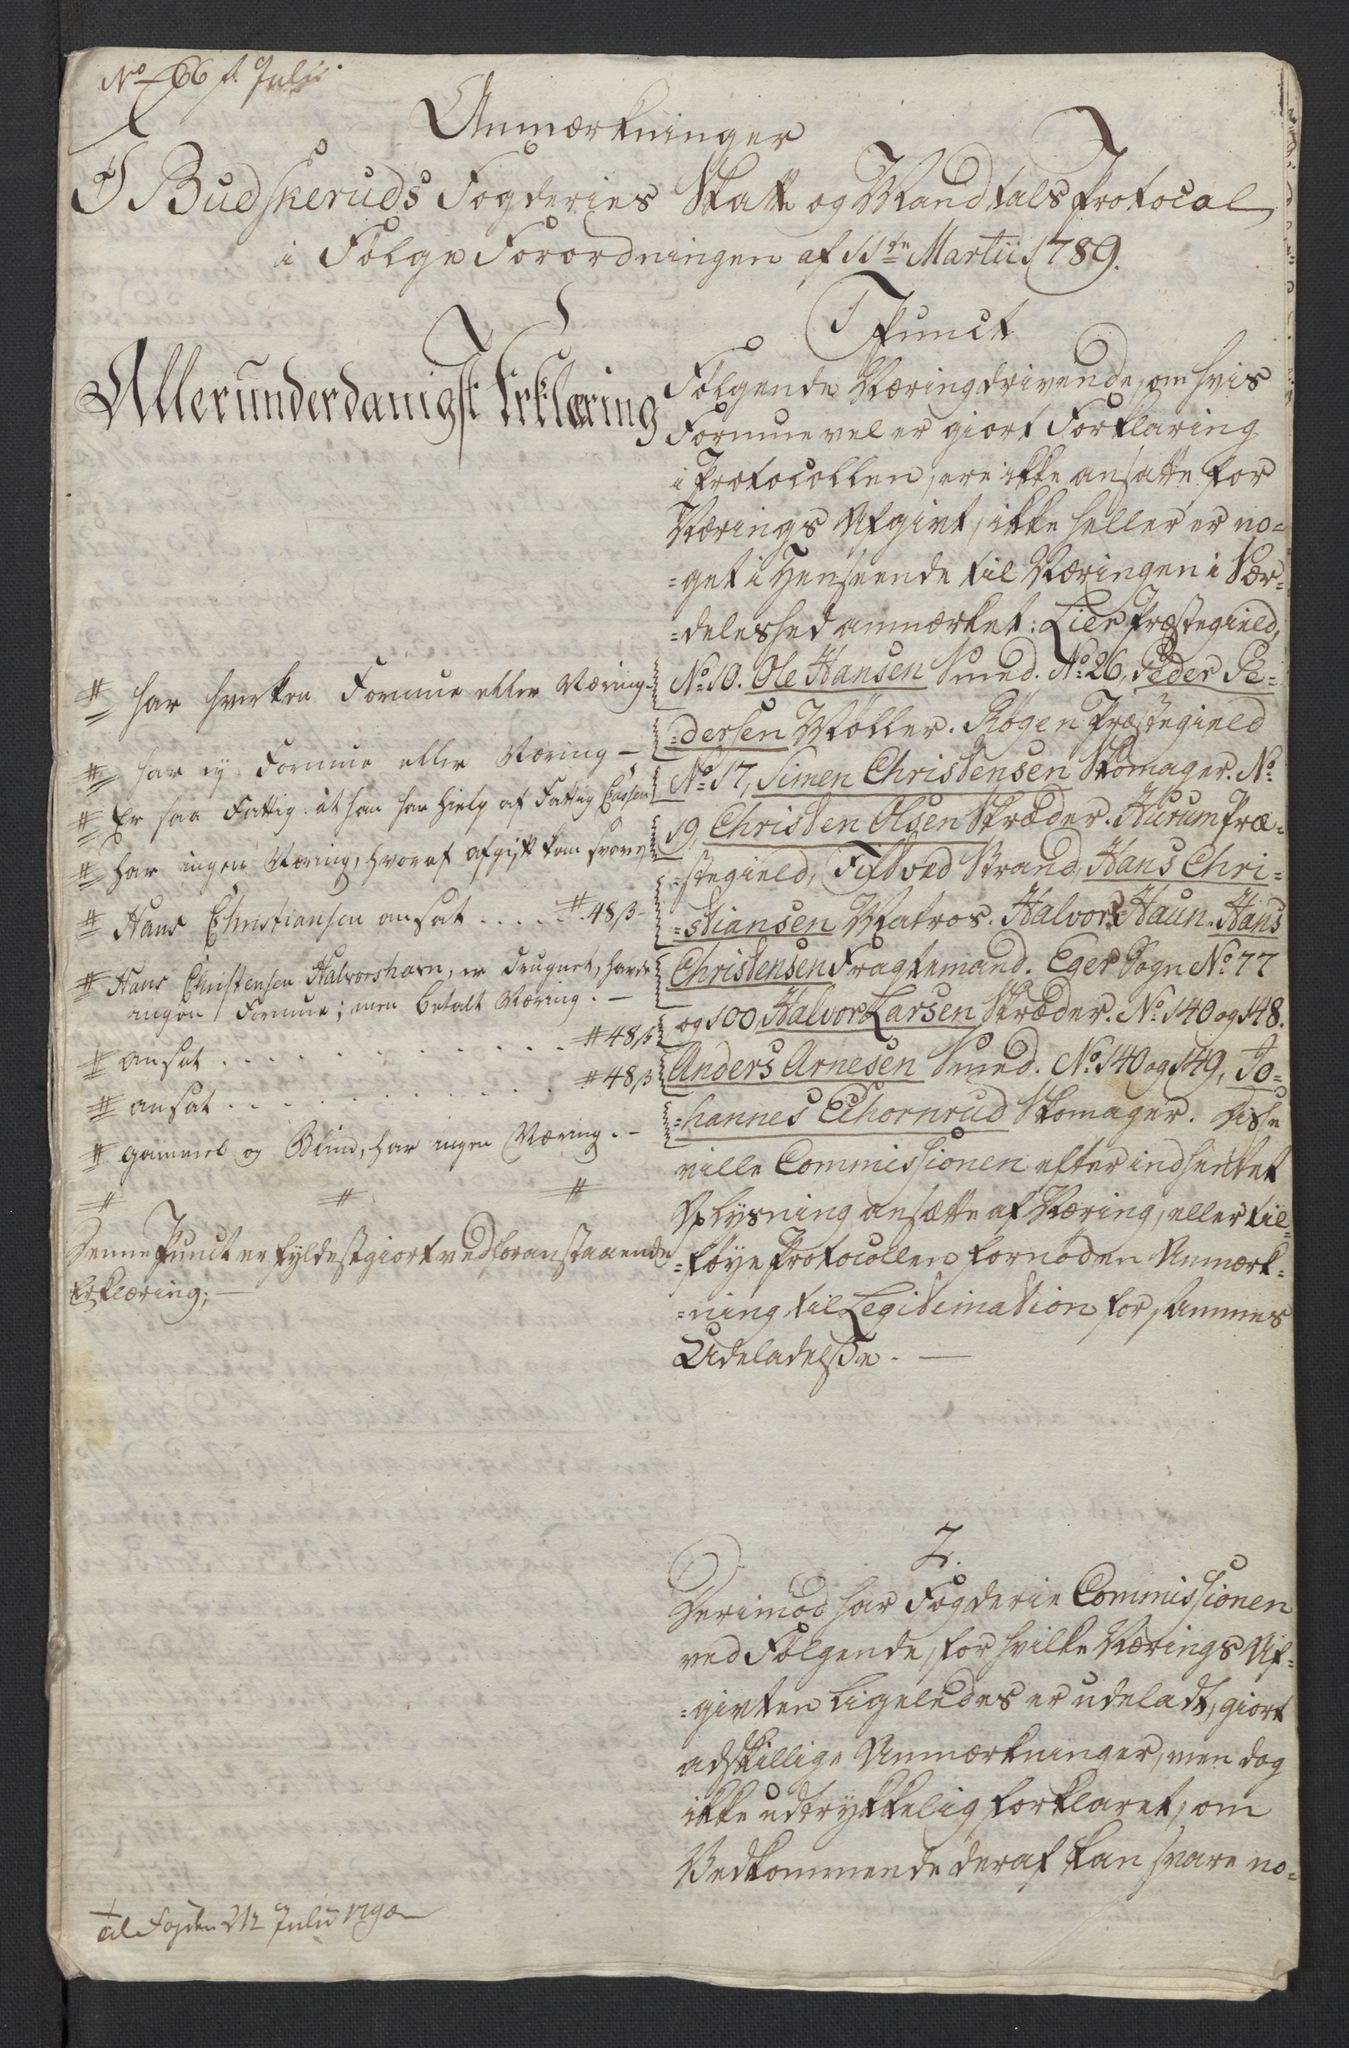 No 66 f. Julii
Anmærkninger
I Budskeruds Fogderies Skatte og Mandtals Protocol
i Følge Forordningen af 11te Martii 1789.
Allerunderdanigst Erklæring
# har hverken Formue eller Næring.
# har ej Formue eller Næring –
# Er saa Fattig at han har Hielp af Fattig Cassen
# har ingen Næring, hvoraf afgift kan svares
# Hans Christiansen ansat . . . . # 48 β
# Hans Christensen Halvorshavn, er drugnet, havde
ingen Formue; men betalt Næring. –
# ansat . . . . . . . . . . . . # 48 β
# ansat . . . . . . . . . . . . # 48 β
# gammel og Blind, har ingen Næring. –
# # #
Denne Punct er fyldestgiort ved foranstaaende
Erklæring; –
1 Punct
Følgende Næringdrivende, om hvis
Formue vel er giort Forklaring
i Protocollen, ere ikke ansatte for
Nærings Afgivt, ikke heller er no=
=get i Henseende til Næringen i Sær=
=deleshed anmærket: Lier Præstegield,
No 10. Ole Hansen Smed. No 26, Peder Pe=
=dersen Møller. Røgen Præstegield
No 17, Simen Christensen Skomager. No
19, Christen Olsen Skræder. Hurum Præ=
=stegield, Filtved Strand, Hans Chri=
=stiansen Matros. Halvors Haun. Hans
Christensen Fragtemand. Eger Sogn No 77
og 100 Halvor Larsen Skræder. No 140 og 148.
Anders Arnesen Smed. No 140 og 149, Jo=
=hannes Ehornrud Skomager. Disse
ville Commissionen efter indhentet
Oplysning ansætte af Næring, eller til=
=føye Protocollen fornøden Anmærk=
=ning til Legitimation for sammes
Udeladelse. —
2.
Derimod har Fogderie Commissionen
ved Følgende, for hvilke Nærings Af=
=givten ligeledes er udeladt, giort
adskillige Anmærkninger, men dog
ikke udtrykkelig forklaret, om
Vedkommende deraf kan svare no=
til Fogden 21 Julii 1790